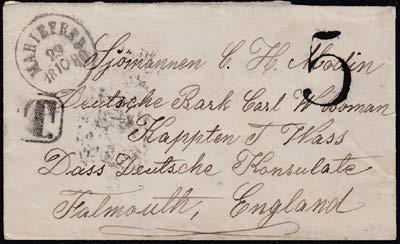 MARIEFRED
29
1810
Sjömannen C. H. Modin
5
T.
Deutsche Bark Carl Wissman
Kappten T Wass
Dass Deutsche Konsulate
Falmouth, England